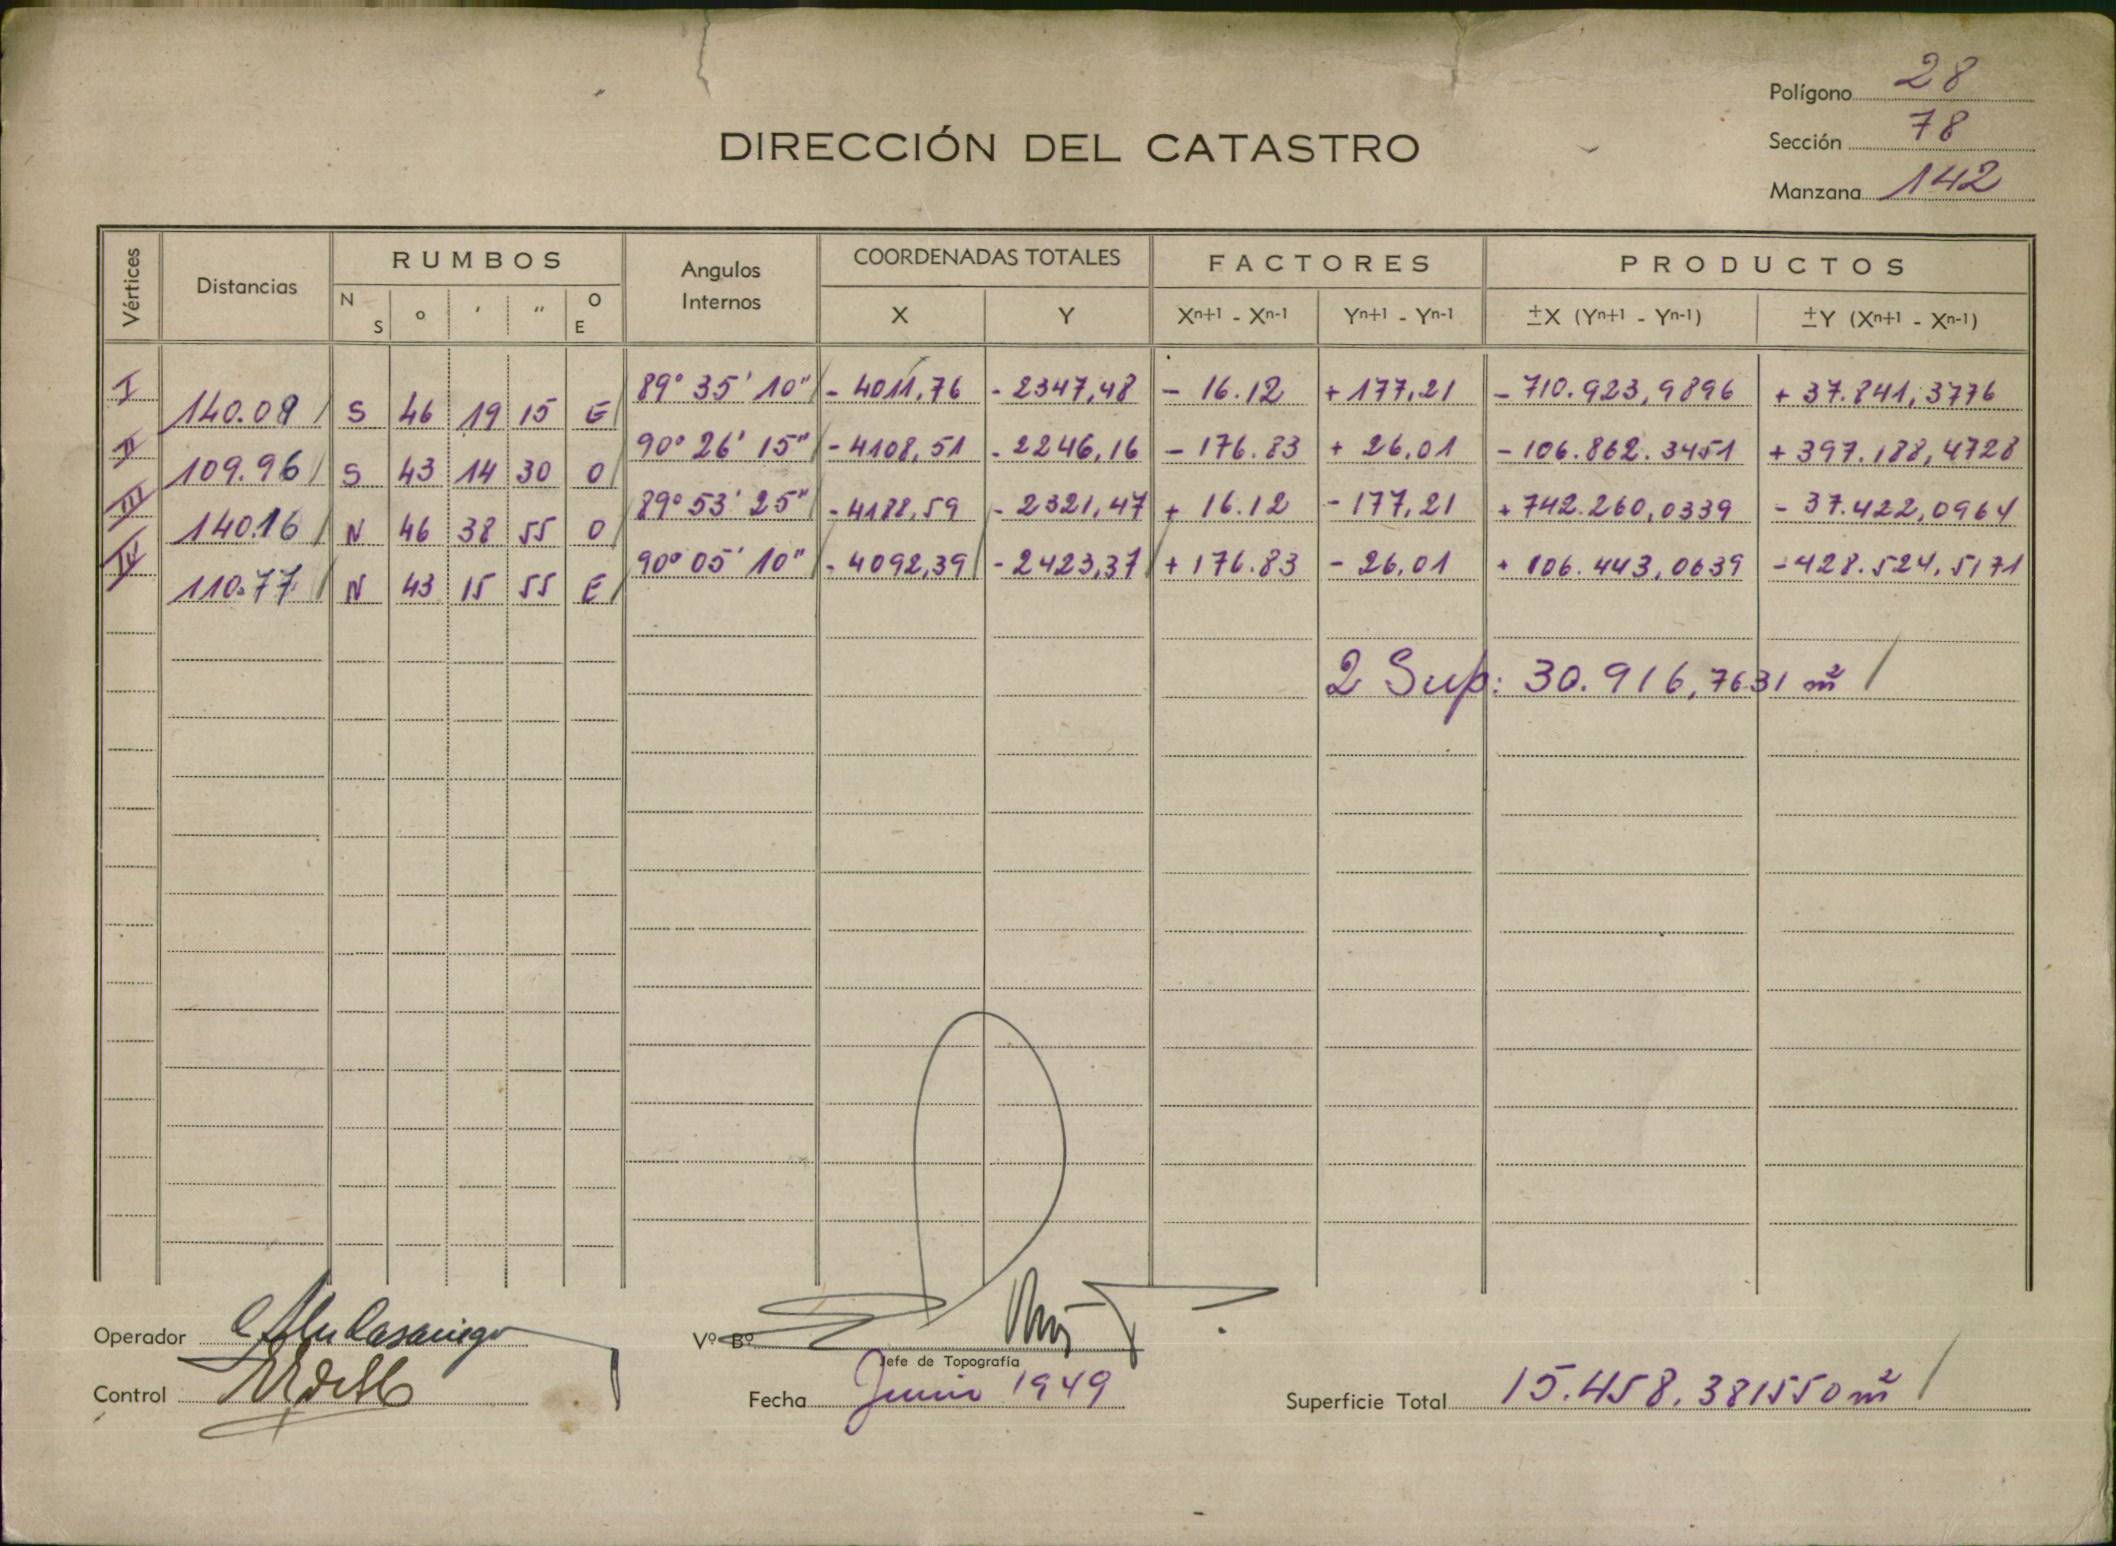 Polígono 28
Sección 78
Manzana 142
DIRECCIÓN DEL CATASTRO
Vértices Distancias RUMBOS Angulos Internos COORDENADAS TOTALES FACTORES PRODUCTOS
N S o ′ ″ O E X Y Xn+1 - Xn-1 Yn+1 - Yn-1 ±X (Yn+1 - Yn-1) ±Y (Xn+1 - Xn-1)
I 89° 35' 10" - 4011,76 - 2347,48 - 16.12 + 177,21 - 710.923,9896 + 37.841,3776
140.09 S 46 19 15 E
II 90° 26' 15" - 4108,51 - 2246,16 - 176.83 + 26,01 - 106.862.3451 + 397.188,4728
109.96 S 43 14 30 O
III 89° 53' 25" - 4188,59 - 2321,47 + 16.12 - 177,21 + 742.260,0339 - 37.422,0964
140.16 N 46 38 55 O
IV 90° 05' 10" - 4092,39 - 2423,37 + 176.83 - 26,01 + 106.443,0639 - 428.524,5171
110.77 N 43 15 55 E
2 Sup: 30.916,7631 m²
Operador
Vº Bº
Jefe de Topografía
Control
Fecha Junio 1949
Superficie Total 15.458,381550 m²